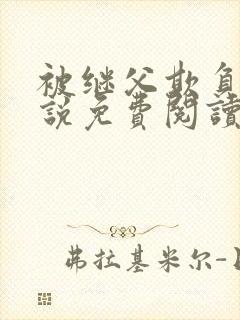 被继父欺负
説免費閱讀
弗拉基米尔-